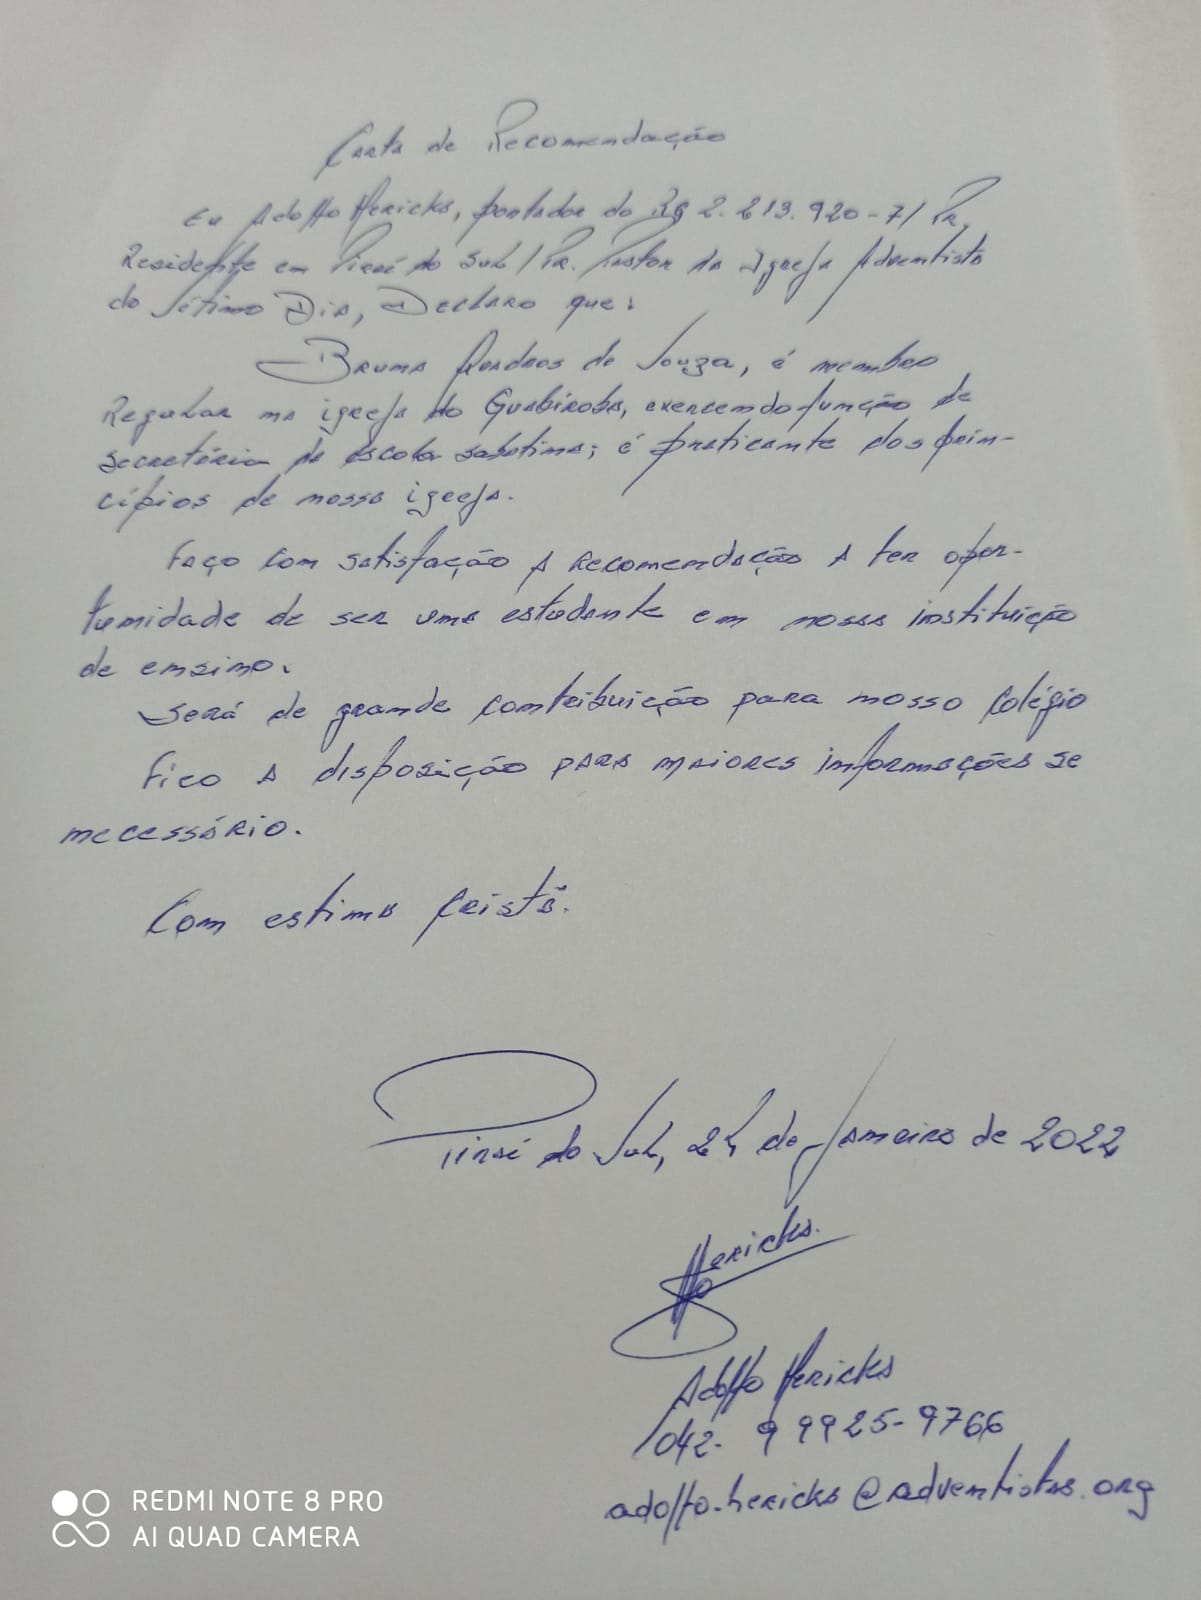 Carta de Recomendação
Eu Adolfo Hericks, portador do RG 2.213.920-7/Pr,
Residente em Piraí do Sul/Pr. Pastor da Igreja Adventista
do Sétimo Dia, Declaro que:
Bruna Quadros de Souza, é membro
Regular na igreja do Guabiroba, exercendo função de
secretária da escola sabatina; é praticante dos prin-
cípios de nossa igreja.
Faço com satisfação a recomendação a ter opor-
tunidade de ser uma estudante em nossa instituição
de ensino.
Será de grande contribuição para nosso Colégio
Fico a disposição para maiores informações se
necessário.
Com estima Cristã.
Piraí do Sul, 24 de Janeiro de 2022
Hericks.
Adolfo Hericks
042- 9 9925-9766
adolfo.hericks@adventistas.org
REDMI NOTE 8 PRO
AI QUAD CAMERA